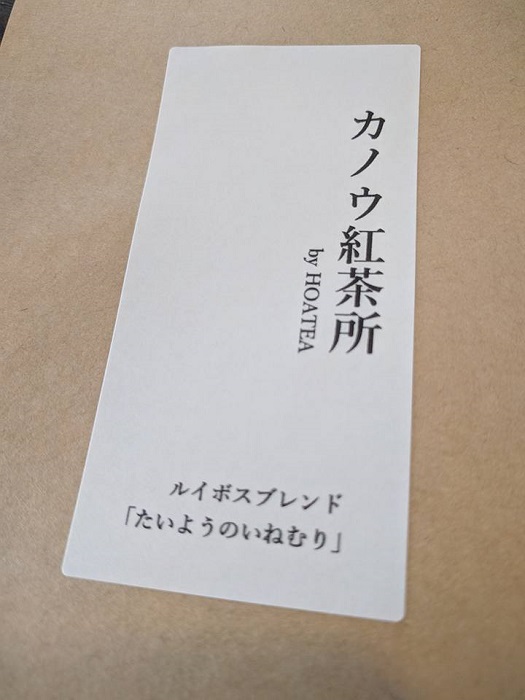 カノウ紅茶所
by HOATEA
ルイボスブレンド
「たいようのいねむり」